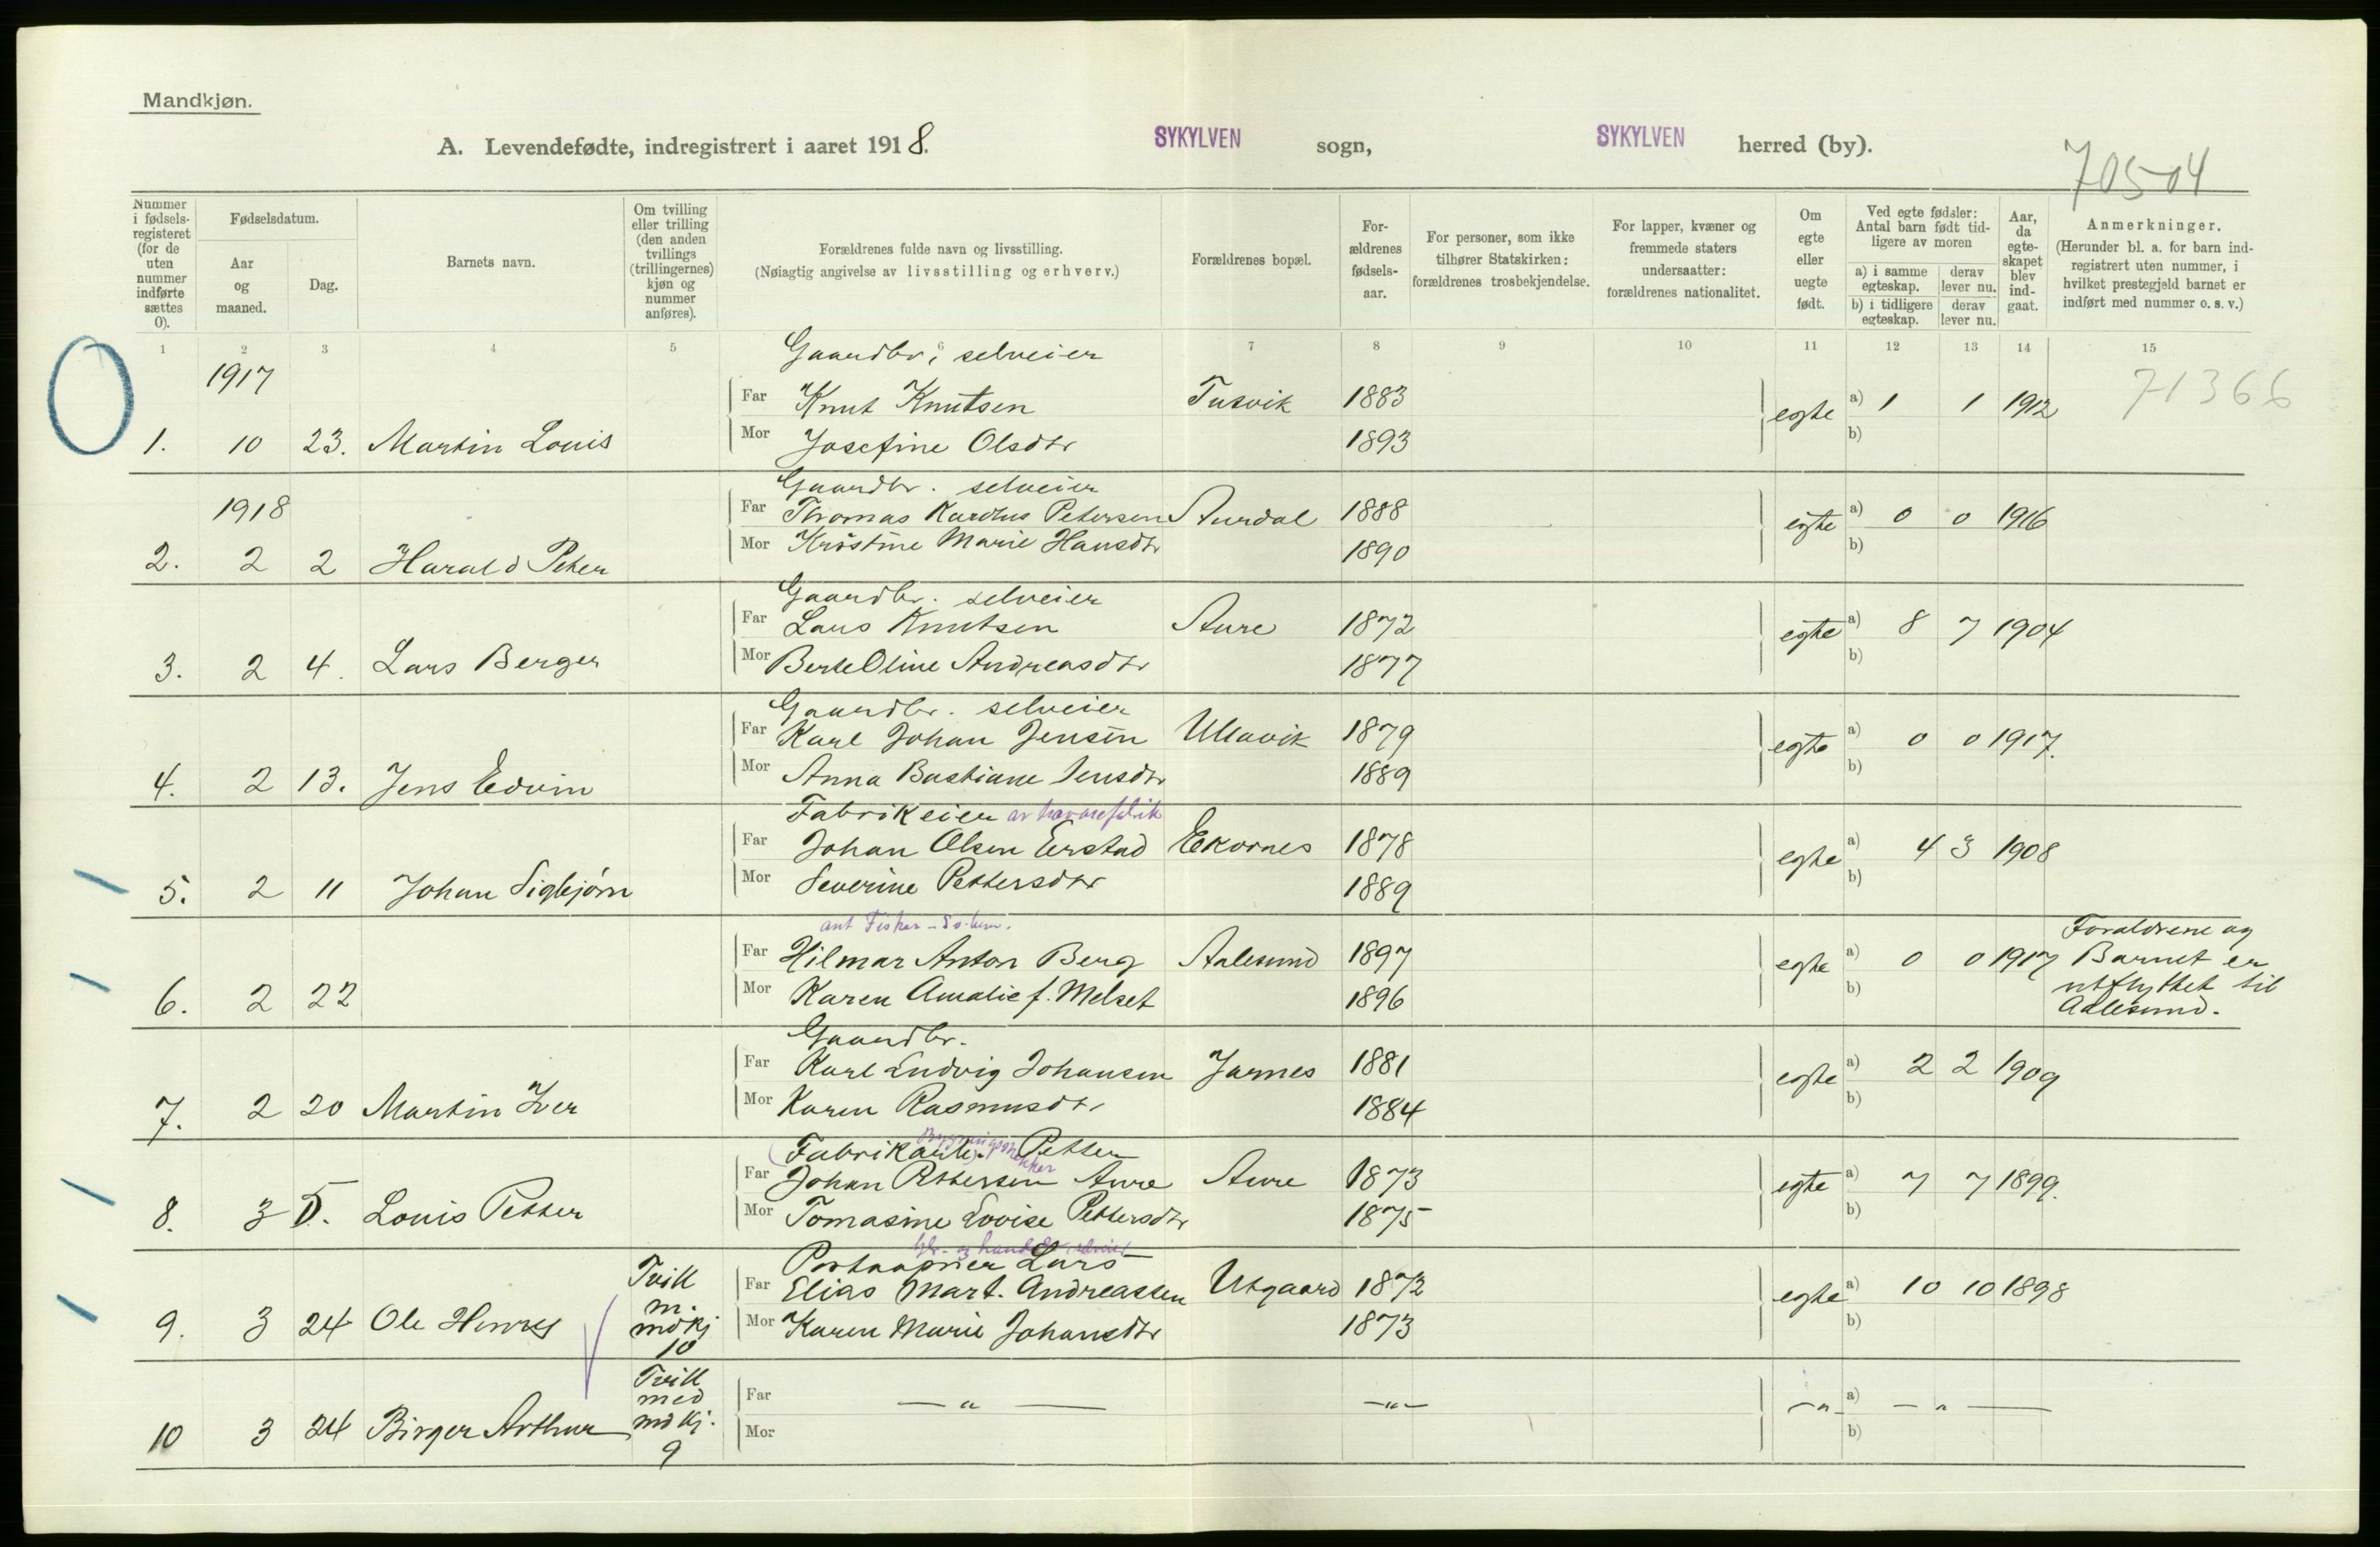 Mandkjøn.
A. Levendefødte, indregistrert i aaret 1918. SYKYLVEN sogn, SYKYLVEN herred (by).
70504
Nummer i fødsels-registeret (for de uten nummer indførte sættes 0).
Fødselsdatum.
Aar og maaned.
Dag.
Barnets navn.
Om tvilling eller trilling (den anden tvillings (trillingernes) kjøn og nummer anføres).
Forældrenes fulde navn og livsstilling.
(Nøiagtig angivelse av livsstilling og erhverv.)
Forældrenes bopæl.
For-ældrenes fødsels-aar.
For personer, som ikke tilhører Statskirken: forældrenes trosbekjendelse.
For lapper, kvæner og fremmede staters undersaatter: forældrenes nationalitet.
Om egte eller uegte født.
Ved egte fødsler: Antal barn født tid-ligere av moren
a) i samme egteskap. derav lever nu.
b) i tidligere egteskap. derav lever nu.
Aar, da egte-skapet blev ind-gaat.
Anmerkninger.
(Herunder bl. a. for barn ind-registrert uten nummer, i hvilket prestegjeld barnet er indført med nummer o. s. v.)
1 2 3 4 5 6 7 8 9 10 11 12 13 14 15
0
1917
Gaardbr, selveier
71366
Far Knut Knutsen Tusvik 1883 egte a) 1 1 1912
1. 10 23. Martin Louis Mor Josefine Olsdtr 1893 b)
1918
Gaardbr. selveier
Far Thomas Karolus Petersen Aurdal 1888 egte a) 0 0 1916
2. 2 2 Harald Peter Mor Kristine Marie Hansdtr 1890 b)
Gaardbr. selveier
Far Lars Knutsen Aure 1872 egte a) 8 7 1904
3. 2 4. Lars Berger Mor Berte Oline Andreasdtr 1877 b)
Gaardbr. selveier
Far Karl Johan Jensen Ullavik 1879 egte a) 0 0 1917.
4. 2 13. Jens Edvin Mor Anna Bastiane Jensdtr 1889 b)
Fabrikeier av
Far Johan Olsen Erstad Ekornes 1878 egte a) 4 3 1908
5. 2 11 Johan Sigbjørn Mor Severine Pettersdtr 1889 b)
ant Fisker
Far Hilmar Anton Berg Aalesund 1897 egte a) 0 0 1917
6. 2 22 Mor Karen Amalie f. Melset 1896 b)
Forældrene og
Barnet er
utflyttet til
Aalesund.
Gaardbr.
Far Karl Ludvig Johansen Jarnes 1881 egte a) 2 2 1909
7. 2 20 Martin Iver Mor Karen Rasmusdtr 1884 b)
Bygningssnekker
(Fabrikarb.) Petter
Far Johan Pettersen Aure Aure 1873 egte a) 7 7 1899.
8. 3 5. Louis Petter Mor Tomasine Lovise Pettersdtr 1875 b)
Lars
Far Elias Mart. Andreassen Utgaard 1872 egte a) 10 10 1898
9. 3 24 Ole Henry Tvill m. mdkj 10 Mor Karen Marie Johansdtr 1873 b)
Far — " — — " — — " — a) — " —
10 3 24 Birger Arthur Tvill med mdkj. 9 Mor b)